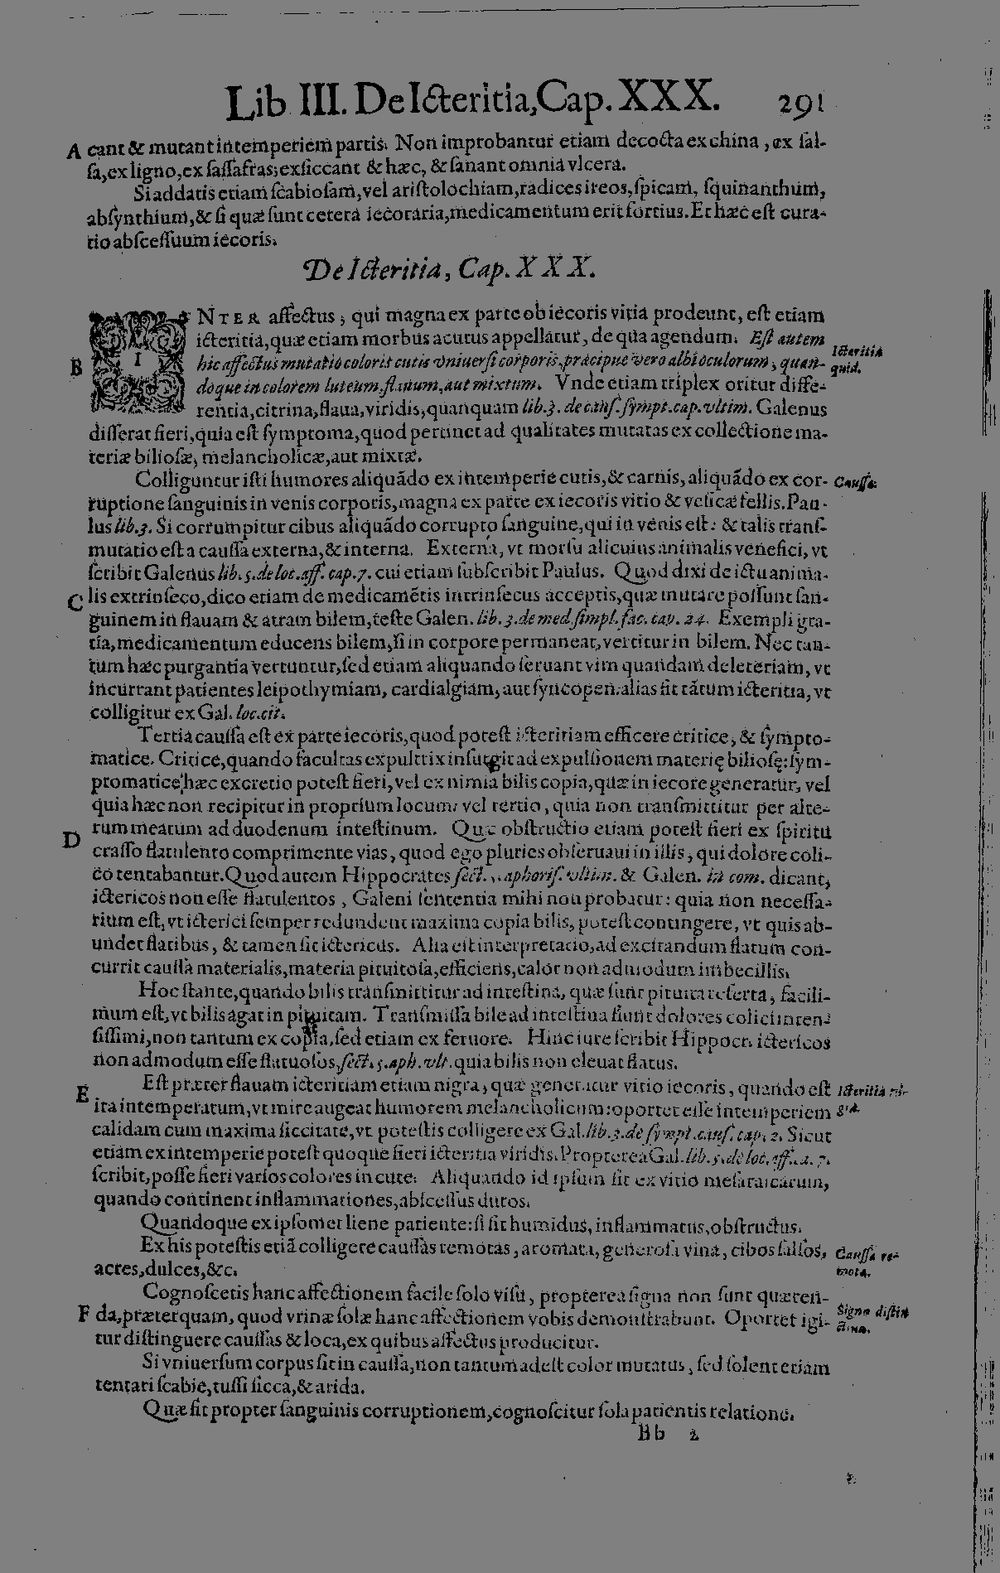 Lib III. De Icteritia, Cap. XXX. 291
A cant & mutant intemperiem partis. Non improbantur etiam decocta ex china, ex sal-
sa, ex ligno, ex sassafras; exsiccant & hæc, & sanant omnia vlcera.
Si addatis etiam scabiosam, vel aristolochiam, radices ireos, spicam, squinanthum,
absynthium, & si quæ sunt cetera iecoraria, medicamentum erit fortius. Et hæc est cura-
tio abscessuum iecoris.
De Icteritia, Cap. XXX.
INTER affectus, qui magna ex parte ob iecoris vitia prodeunt, est etiam
icteritia, quæ etiam morbus acutus appellatur, de qua agendum. Est autem
Icteritia
B hic affectus mutatio coloris cutis vniuersi corporis, præcipue vero albi oculorum, quan-
quid.
doque in colorem luteum, flauum, aut mixtum. Vnde etiam triplex oritur diffe-
rentia, citrina, flaua, viridis, quanquam lib. 3. de caus. sympt. cap. vltim. Galenus
disserat fieri, quia est symptoma, quod pertinet ad qualitates mutatas ex collectione ma-
teriæ biliosæ, melancholicæ, aut mixtæ.
Colliguntur isti humores aliquãdo ex intemperie cutis, & carnis, aliquãdo ex cor-
Caussæ.
ruptione sanguinis in venis corporis, magna ex parte ex iecoris vitio & vesicæ fellis. Pau-
lus lib. 3. Si corrumpitur cibus aliquãdo corrupto sanguine, qui in venis est: & talis trans-
mutatio est a caussa externa, & interna. Externa, vt morsu alicuius animalis venefici, vt
scribit Galenus lib. 5. de loc. aff. cap. 7. cui etiam subscribit Paulus. Quod dixi de ictu anima-
C lis extrinseco, dico etiam de medicamẽtis intrinsecus acceptis, quæ mutare possunt san-
guinem in flauam & atram bilem, teste Galen. lib. 3. de med. simpl. fac. cap. 24. Exempli gra-
tia, medicamentum educens bilem, si in corpore permaneat, vertitur in bilem. Nec tan-
tum hæc purgantia vertuntur, sed etiam aliquando seruant vim quandam deleteriam, vt
incurrant patientes leipothymiam, cardialgiam, aut syncopen: alias fit tãtum icteritia, vt
colligitur ex Gal. loc. cit.
Tertia caussa est ex parte iecoris, quod potest icteritiam efficere critice, & sympto-
matice. Critice, quando facultas expultrix insurgit ad expulsionem materię biliosę: sym-
ptomatice, hæc excretio potest fieri, vel ex nimia bilis copia, quæ in iecore generatur, vel
quia hæc non recipitur in proprium locum: vel tertio, quia non transmittitur per alte-
D rum meatum ad duodenum intestinum. Quæ obstructio etiam potest fieri ex spiritu
crasso flatulento comprimente vias, quod ego pluries obseruaui in illis, qui dolore coli-
co tentabantur. Quod autem Hippocrates sect. 5. aphoris. vltim. & Galen. in com. dicant,
ictericos non esse flatulentos, Galeni sententia mihi non probatur: quia non necessa-
rium est, vt icterici semper redundent maxima copia bilis, potest contingere, vt quis ab-
undet flatibus, & tamen sit ictericus. Alia est interpretatio, ad excitandum flatum con-
currit caussa materialis, materia pituitosa, efficiens, calor non admodum imbecillis.
Hoc stante, quando bilis transmittitur ad intestina, quæ sunt pituita referta, facili-
mum est, vt bilis agat in pituitam. Transmissa bile ad intestina fiunt dolores colici inten-
sissimi, non tantum ex copia, sed etiam ex feruore. Hinc iure scribit Hippocr. ictericos
non admodum esse flatuosos, sect. 5. aph. vlt. quia bilis non eleuat flatus.
E Est præter flauam icteritiam etiam nigra, quæ generatur vitio iecoris, quando est
Icteritia ni-
ita intemperatum, vt mire augeat humorem melancholicum: oportet esse intemperiem
gra.
calidam cum maxima siccitate, vt potestis colligere ex Gal. lib. 3. de sympt. caus. cap. 2. Sicut
etiam ex intemperie potest quoque fieri icteritia viridis. Propterea Gal. lib. 5. de loc. aff. c. 7.
scribit, posse fieri varios colores in cute. Aliquando id ipsum fit ex vitio mesaraicarum,
quando continent inflammationes, abscessus duros.
Quandoque ex ipsomet liene patiente: si sit humidus, inflammatus, obstructus.
Ex his potestis etiã colligere caussas remotas, aromata, generosa vina, cibos salsos,
Caussæ re-
acres, dulces, &c.
motæ.
Cognoscetis hanc affectionem facile solo visu, propterea signa non sunt quæren-
F da, præterquam, quod vrinæ solæ hanc affectionem vobis demonstrabunt. Oportet igi-
Signa distin
tur distinguere caussas & loca, ex quibus affectus producitur.
ctiua.
Si vniuersum corpus sit in caussa, non tantum adest color mutatus, sed solent etiam
tentari scabie, tussi sicca, & arida.
Quæ fit propter sanguinis corruptionem, cognoscitur sola patientis relatione.
Bb 2